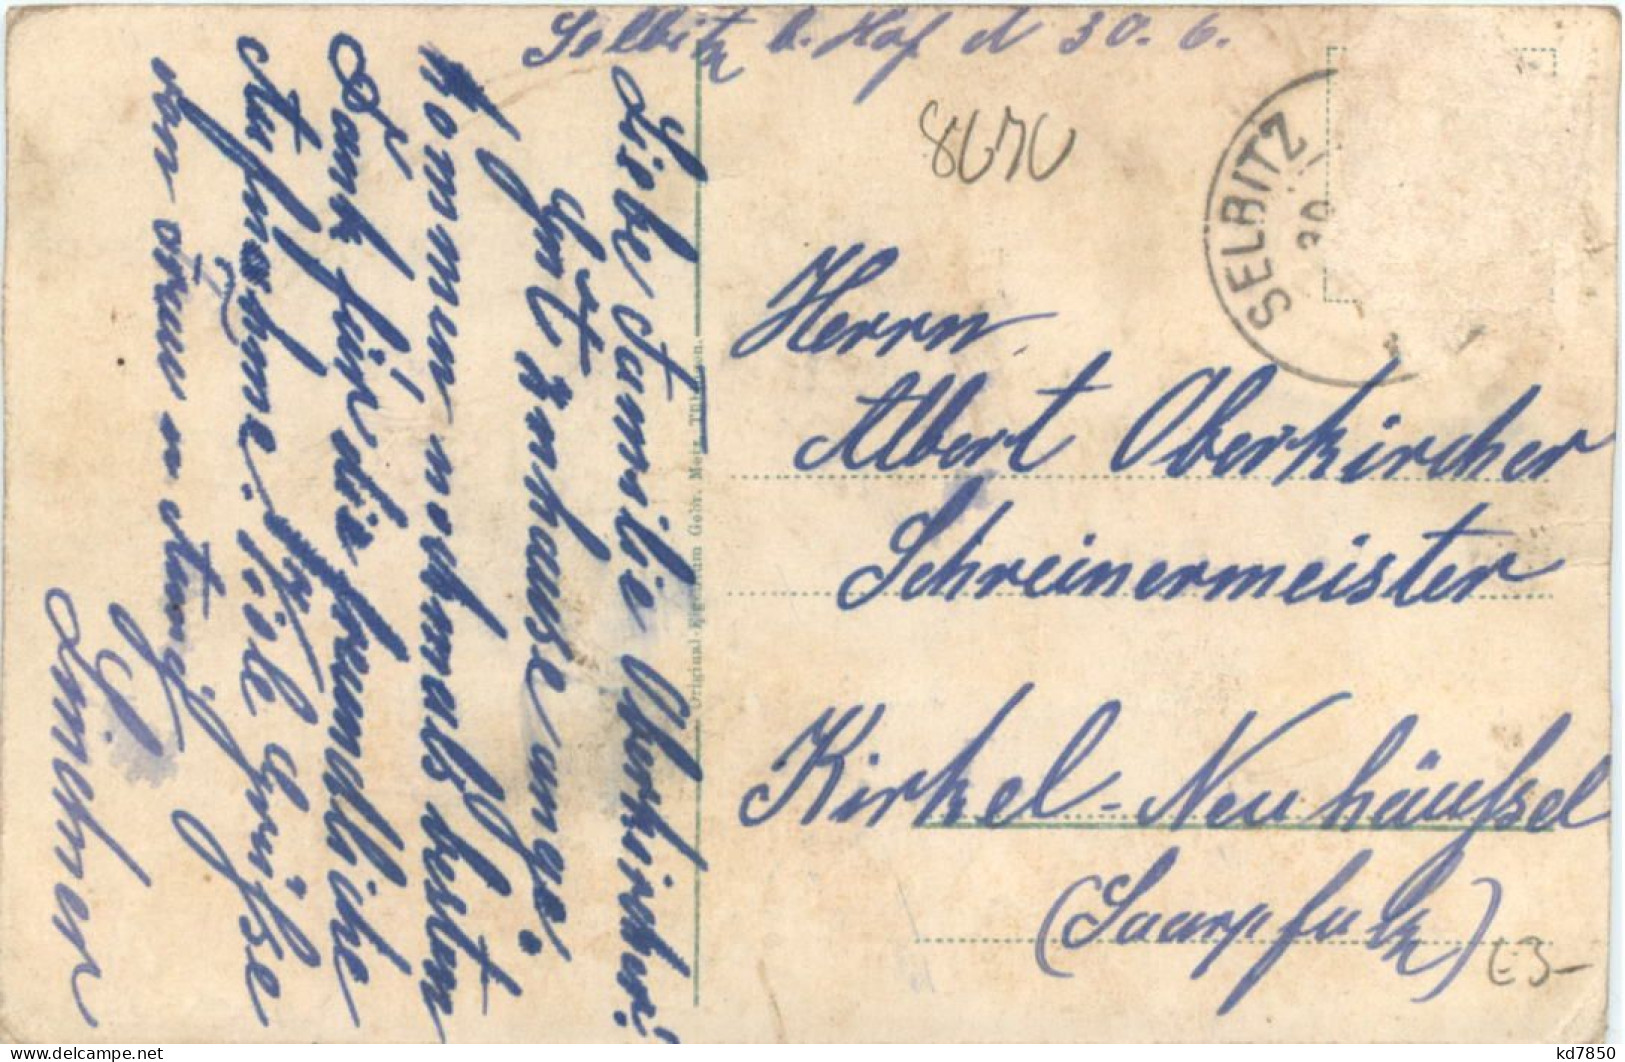 Selbitz b. Hof d 30. 6.
Liebe Familie Oberkircher!
Gut zuhause ange
kommen nochmals besten
Dank für die freundliche
Aufnahme. Viele Grüße
von
Lindner
Original-Eigentum Gebr. Metz, Tübingen.
8670
SELBITZ
30
Herrn
Albert Oberkircher
Schreinermeister
Kirkel-Neuhäußel
(Saarpfalz)
E3-
kd7850